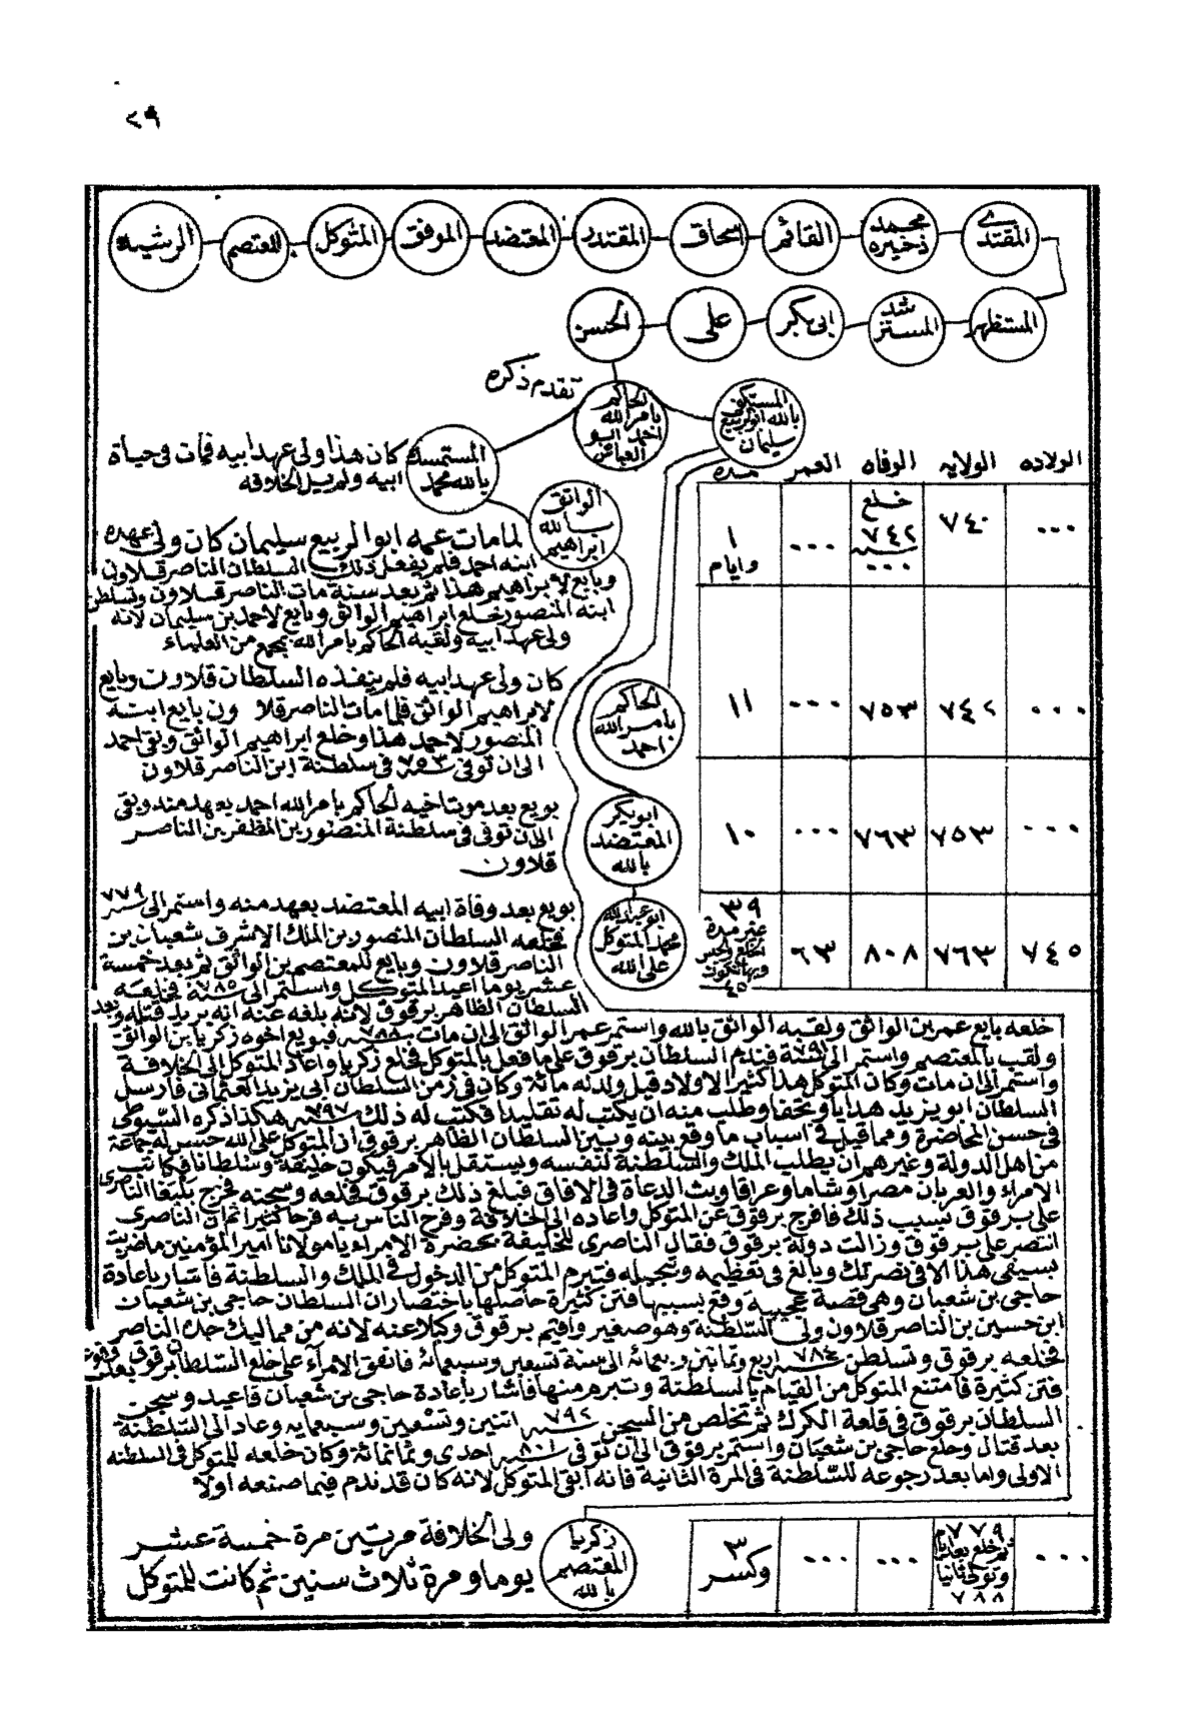 ٢٩
الرشيد
المعتصم
المتوكل
الموفق
المعتضد
المقتدر
اسحاق
القائم
محمد ذخيره
المقتدي
المستظهر
المسترشد
ابى بكر
على
الحسن
تقدم ذكره
الحاكم
بامر الله
احمد ابو
العباس
المستكفى
بالله ابو الربيع
سليمان
المستمسك
بالله محمد
كان هذا ولى عهد ابيه فمات فى حياة
ابيه ولم يل الخلافه
الولاده الولايه الوفاه العمر مده
... ٧٤٠ خلع ٧٤٢ سنه ... ... ١ وايام
الواثق
بالله
ابراهيم
لما مات عمه ابو الربيع سليمان كان ولى عهده
ابنه احمد فلم يفعل ذلك السلطان الناصر قلاون
وبايع لابراهيم هذا ثم بعد سنة مات الناصر قلاون وتسلطن
ابنه المنصور خلع ابراهيم الواثق وبايع لاحمد بن سليمان لانه
ولى عهد ابيه ولقبه الحاكم بامر الله بمجمع من العلماء
... ٧٤٢ ٧٥٣ ... ١١
الحاكم
بامر الله
احمد
كان ولى عهد ابيه فلم ينفذه السلطان قلاون وبايع
لابراهيم الواثق فلما مات الناصر قلاون بايع ابنه
المنصور لاحمد هذا وخلع ابراهيم الواثق وبقى احمد
الى ان توفى ٧٥٣ فى سلطنة ابن الناصر قلاون
... ٧٥٣ ٧٦٣ ... ١٠
ابو بكر
المعتضد
بالله
بويع بعد موت اخيه الحاكم بامر الله احمد بعهد منه وبقى
الى ان توفى فى سلطنة المنصور بن المظفر بن الناصر
قلاون
٧٤٥ ٧٦٣ ٨٠٨ ٦٣ ٣٩ غير مدة الخلع والحبس وبها تكون ٤٥
ابو عبد الله
محمد المتوكل
على الله
بويع بعد وفاة ابيه المعتضد بعهد منه واستمر الى سنة ٧٧٩
فخلعه السلطان المنصور بن الملك الاشرف شعبان بن
الناصر قلاون وبايع للمعتصم بن الواثق ثم بعد خمسة
عشر يوما اعيد المتوكل واستمر الى سنة ٧٨٥ فخلعه
السلطان الظاهر برقوق لانه بلغه عنه انه يريد قتله وبعد
خلعه بايع عمر بن الواثق ولقبه الواثق بالله واستمر عمر الواثق الى ان مات سنه ٧٨٨ فبويع اخوه زكريا بن الواثق
ولقب بالمعتصم واستمر الى سنة ٧٩١ فندم السلطان برقوق على ما فعل بالمتوكل فخلع زكريا واعاد المتوكل الى الخلافة
واستمر الى ان مات وكان المتوكل هذا كثير الاولاد قيل ولد له مائة وكان فى زمن السلطان ابى يزيد العثمانى فارسل
السلطان ابو يزيد هدايا وتحفا وطلب منه ان يكتب له تقليدا فكتب له ذلك سنه ٧٩٧ هكذا ذكره السيوطى
فى حسن المحاضرة ومما قيل فى اسباب ما وقع بينه وبين السلطان الظاهر برقوق ان المتوكل على الله حسن له جماعة
من اهل الدولة وغيرهم ان يطلب الملك والسلطنة لنفسه ويستقل بالامر فيكون خليفة وسلطانا فكاتب
الامراء والعربان مصرا وشاما وعراقا وبث الدعاة فى الافاق فبلغ ذلك برقوق فخلعه وسجنه فخرج يلبغا الناصرى
على برقوق بسبب ذلك فافرج برقوق عن المتوكل واعاده الى الخلافة وفرح الناس به فرحا كثيرا ثم ان الناصرى
انتصر على برقوق وزالت دولة برقوق فقال الناصرى للخليفة بحضرة الامراء يا مولانا امير المؤمنين ما ضربت
بسيفى هذا الا فى نصرتك وبالغ فى تعظيمه وتبجيله فتبرم المتوكل من الدخول فى الملك والسلطنة فاشار باعادة
حاجى بن شعبان وهى قصة عجيبة وقع بسببها فتن كثيرة حاصلها باختصار ان السلطان حاجى بن شعبان
ابن حسين بن الناصر قلاون ولى السلطنة وهو صغير واقيم برقوق وكيلا عنه لانه من مماليك جده الناصر
فخلعه برقوق وتسلطن سنه ٧٨٤ اربع وثمانين وسبعمائة الى سنة تسعين وسبعمائة فاتفق الامراء على خلع السلطان برقوق بعد وقوع
فتن كثيرة فامتنع المتوكل من القيام بالسلطنة وتبرم منها فاشار باعادة حاجى بن شعبان فاعيد وسجن
السلطان برقوق فى قلعة الكرك ثم تخلص من السجن سنه ٧٩٢ اثنين وتسعين وسبعمايه وعاد الى السلطنة
بعد قتال وخلع حاجى بن شعبان واستمر برقوق الى ان توفى سنه ٨٠١ احدى وثمانمائة وكان خلعه للمتوكل فى السلطنه
الاولى واما بعد رجوعه للسلطنة فى المرة الثانية فانه ابقى المتوكل لانه كان قد ندم فيما صنعه اولا
... ٧٧٩ ثم خلع بعد ايام وتولى ثانيا ٧٨٨ ... ... ٣ وكسر
زكريا
المعتصم
بالله
ولى الخلافة مرتين مرة خمسة عشر
يوما ومرة ثلاث سنين ثم كانت للمتوكل